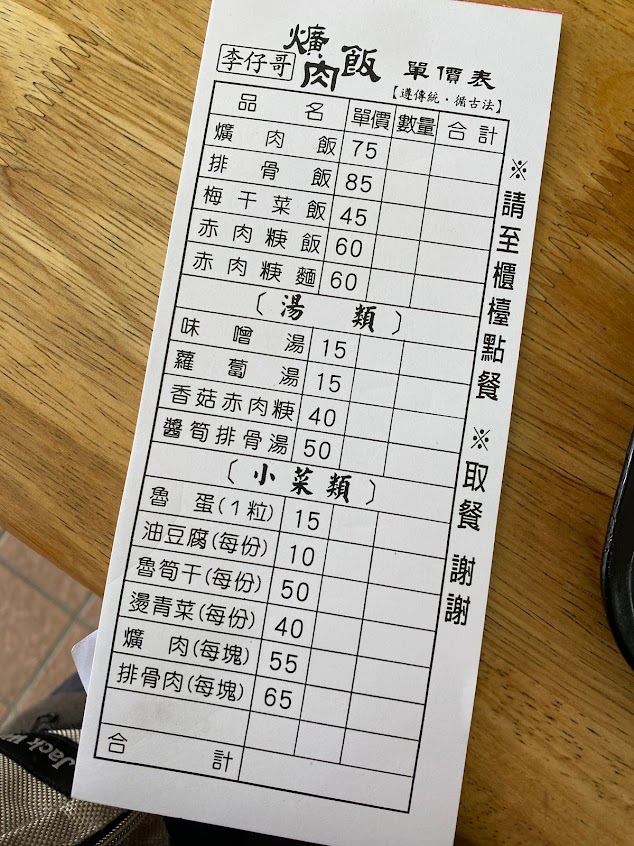 李仔哥 爌肉飯 單價表
【遵傳統・循古法】
品名 單價 數量 合計
爌肉飯 75
排骨飯 85
梅干菜飯 45
赤肉焿飯 60
赤肉焿麵 60
〔湯類〕
味噌湯 15
蘿蔔湯 15
香菇赤肉焿 40
醬筍排骨湯 50
〔小菜類〕
魯蛋(1粒) 15
油豆腐(每份) 10
魯筍干(每份) 50
燙青菜(每份) 40
爌肉(每塊) 55
排骨肉(每塊) 65
合計
※請至櫃檯點餐 ※取餐 謝謝
Jack